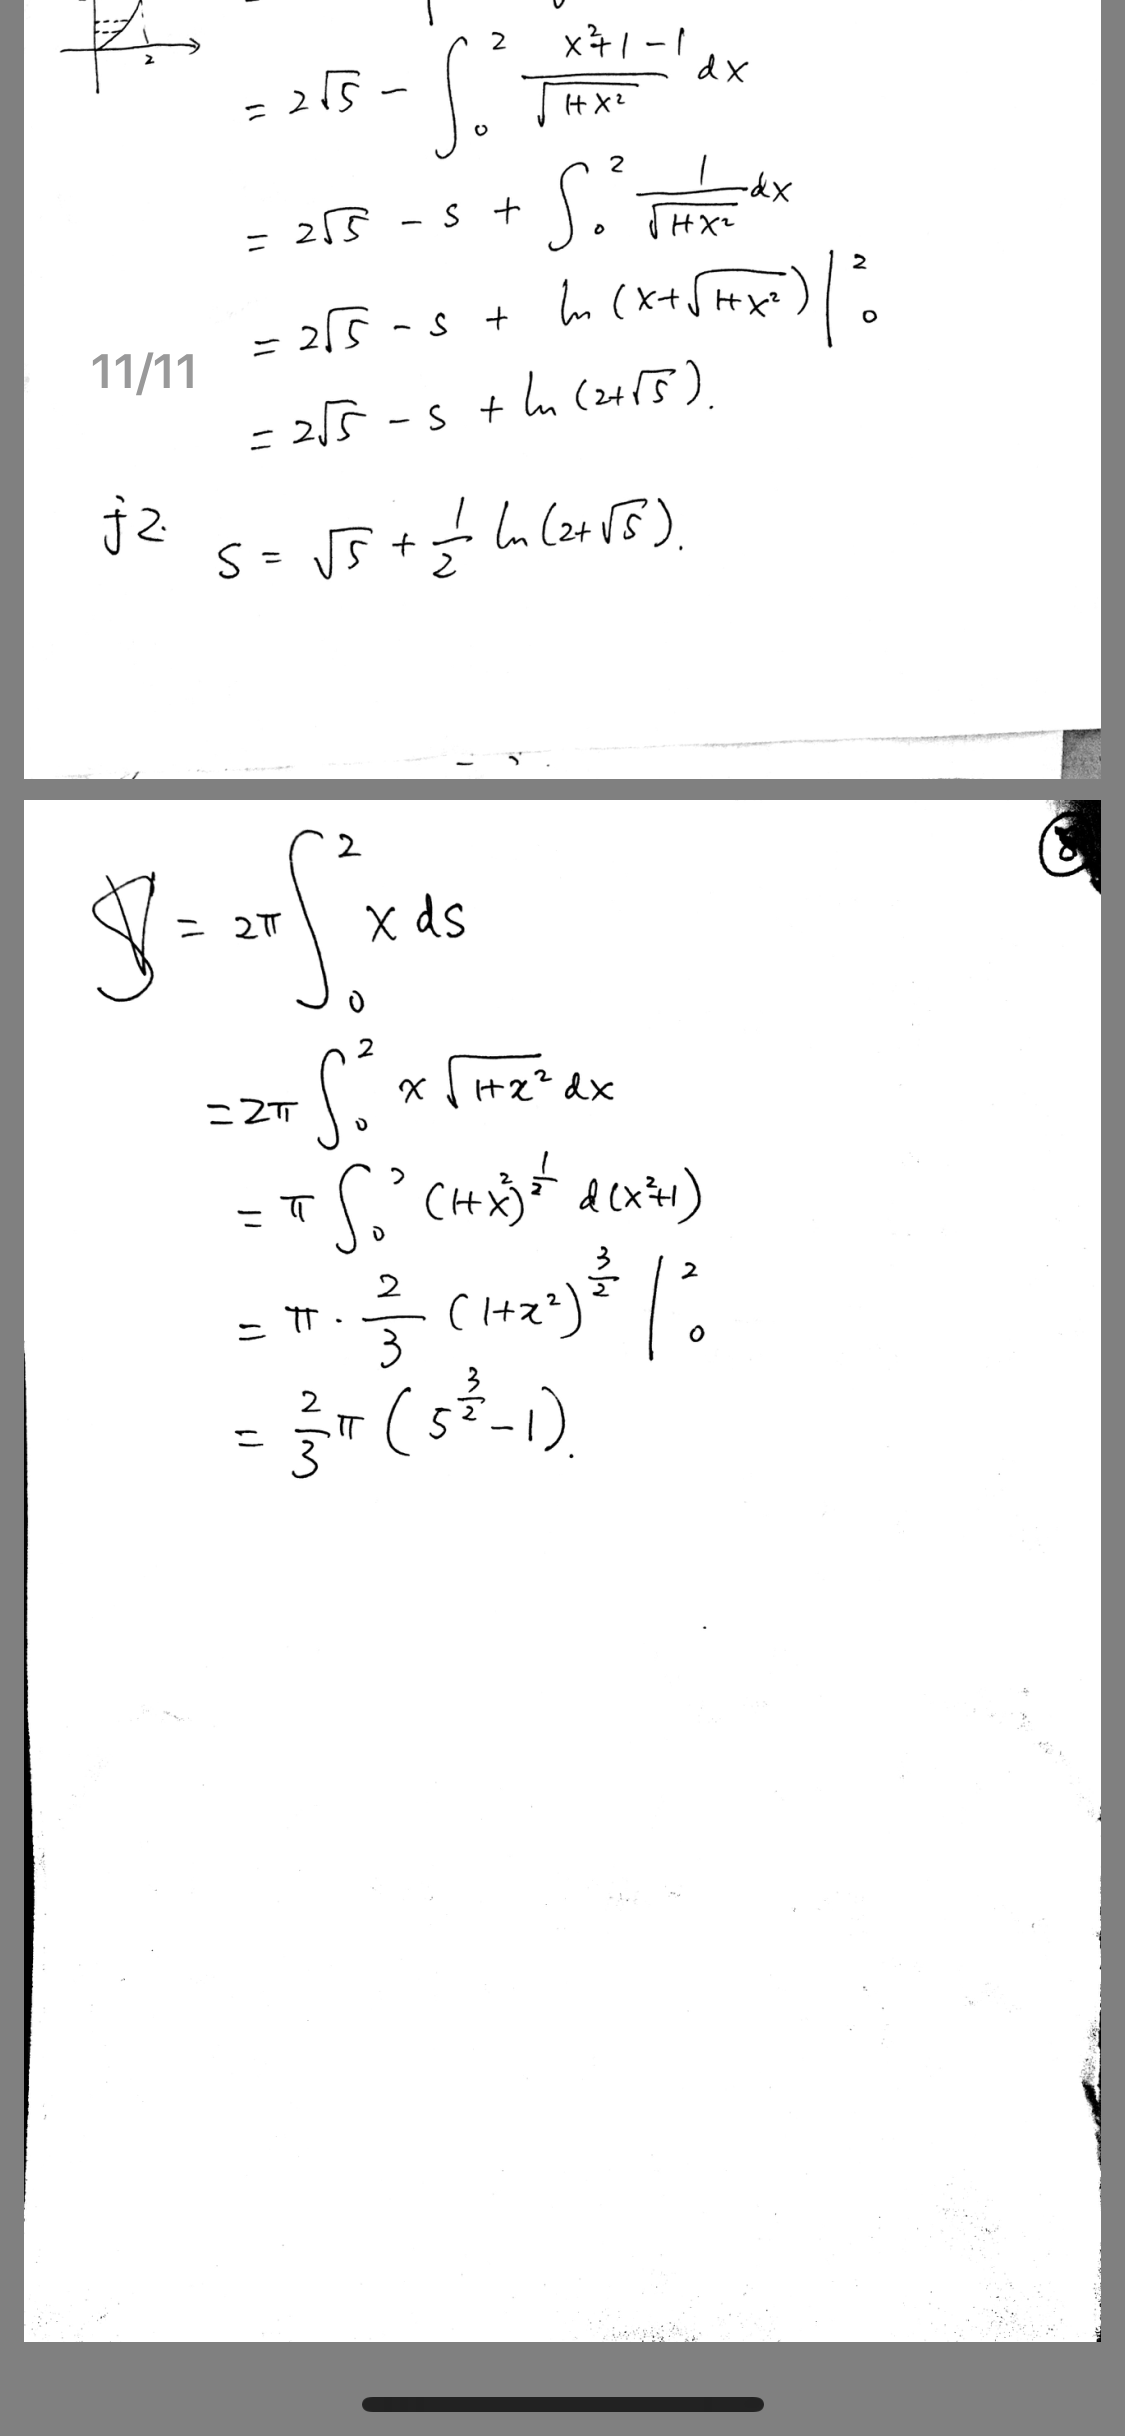 2
= 2√5 − ∫₀² (x²+1−1)/√(1+x²) dx
= 2√5 − s + ∫₀² 1/√(1+x²) dx
= 2√5 − s + ln (x+√(1+x²)) |₀²
11/11
= 2√5 − s + ln (2+√5).
s = √5 + 1/2 ln (2+√5).
8
= 2π ∫₀² x ds
= 2π ∫₀² x √(1+x²) dx
= π ∫₀² (1+x²)^(1/2) d(x²+1)
= π · 2/3 (1+x²)^(3/2) |₀²
= 2/3 π (5^(3/2) − 1).